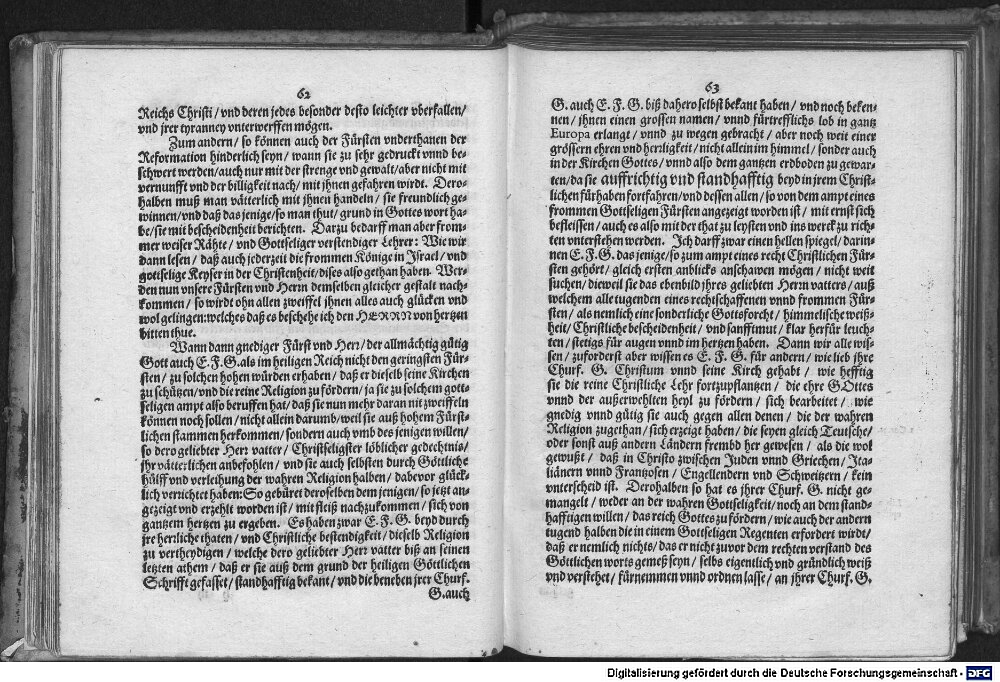 62
Reichs Christi / vnd deren jedes besonder desto leichter vberfallen /
vnd jrer tyranney vnterwerffen mögen.
Zum andern / so können auch der Fürsten vnderthanen der
Reformation hinderlich seyn / wann sie zu sehr gedruckt vnnd be-
schwert werden / auch nur mit der strenge vnd gewalt / aber nicht mit
vernunfft vnd der billigkeit nach / mit jhnen gefahren wirdt. Dero-
halben muß man vätterlich mit jhnen handeln / sie freundlich ge-
winnen / vnd daß das jenige / so man thut / grund in Gottes wort ha-
be / sie mit bescheidenheit berichten. Darzu bedarff man aber from-
mer weiser Rähte / vnd Gottseliger verstendiger Lehrer: Wie wir
dann lesen / daß auch jederzeit die frommen Könige in Israel / vnd
gottselige Keyser in der Christenheit / dises also gethan haben. Wer-
den nun vnsere Fürsten vnd Herrn demselben gleicher gestalt nach-
kommen / so wirdt ohn allen zweiffel jhnen alles auch glücken vnd
wol gelingen: welches daß es beschehe ich den HERRN von hertzen
bitten thue.
Wann dann gnediger Fürst vnd Herr / der allmächtig gütig
Gott auch E. F. G. als im heiligen Reich nicht den geringsten Für-
sten / zu solchen hohen würden erhaben / daß er dieselb seine Kirchen
zu schützen / vnd die reine Religion zu fördern / ja sie zu solchem gott-
seligen ampt also beruffen hat / daß sie nun mehr daran nit zweiffeln
können noch sollen / nicht allein darumb / weil sie auß hohem Fürst-
lichen stammen herkommen / sondern auch vmb des jenigen willen /
so dero geliebter Herr vatter / Christseligster löblicher gedechtnis /
jhr vätterlichen anbefohlen / vnd sie auch selbsten durch Göttliche
hülff vnd verleihung der wahren Religion halben / dabevor glück-
lich verrichtet haben: So gebüret deroselben dem jenigen / so jetzt an-
gezeigt vnd erzehlt worden ist / mit fleiß nachzukommen / sich von
gantzem hertzen zu ergeben. Es haben zwar E. F. G. beyd durch
jre herrliche thaten / vnd Christliche bestendigkeit / dieselb Religion
zu verthedigen / welche dero geliebter Herr vatter biß an seinen
letzten athem / daß er sie auß dem grund der heiligen Göttlichen
Schrifft gefasset / standhafftig bekant / vnd die beneben jrer Churf.
G. auch
63
G. auch E. F. G. biß dahero selbst bekant haben / vnd noch beken-
nen / jhnen einen grossen namen / vnnd fürtrefflichs lob in gantz
Europa erlangt / vnnd zu wegen gebracht / aber noch weit einer
grössern ehren vnd herligkeit / nicht allein im himmel / sonder auch
in der Kirchen Gottes / vnnd also dem gantzen erdboden zu gewar-
ten / da sie auffrichtig vnd standhafftig beyd in jrem Christ-
lichen fürhaben fortfahren / vnd dessen allen / so von dem ampt eines
frommen Gottseligen Fürsten angezeigt worden ist / mit ernst sich
befleissen / auch es also mit der that zu leysten vnd ins werck zu rich-
ten vnterstehen werden. Ich darff zwar einen hellen spiegel / darin-
nen E. F. G. das jenige / so zum ampt eines recht Christlichen Für-
sten gehört / gleich ersten anblicks anschawen mögen / nicht weit
suchen / dieweil sie das ebenbild jhres geliebten Herrn vatters / auß
welchem alle tugenden eines rechtschaffenen vnnd frommen Für-
sten / als nemlich eine sonderliche Gottsforcht / himmelische weiß-
heit / Christliche bescheidenheit / vnd sanfftmut / klar herfür leuch-
ten / stetigs für augen vnnd im hertzen haben. Dann wir alle wis-
sen / zuforderst aber wissen es E. F. G. für andern / wie lieb jhre
Churf. G. Christum vnnd seine Kirch gehabt / wie hefftig
sie die reine Christliche Lehr fortzupflantzen / die ehre GOttes
vnnd der außerwehlten heyl zu fördern / sich bearbeitet / wie
gnedig vnnd gütig sie auch gegen allen denen / die der wahren
Religion zugethan / sich erzeiget haben / die seyen gleich Teutsche /
oder sonst auß andern Ländern frembd her gewesen / als die wol
gewußt / daß in Christo zwischen Juden vnnd Griechen / Ita-
liänern vnnd Frantzosen / Engellendern vnd Schweitzern / kein
vnterscheid ist. Derohalben so hat es jhrer Churf. G. nicht ge-
mangelt / weder an der wahren Gottseligkeit / noch an dem stand-
hafftigen willen / das reich Gottes zu fördern / wie auch der andern
tugend halben die in einem Gottseligen Regenten erfordert wirdt /
daß er nemlich nichts / das er nicht zuvor dem rechten verstand des
Göttlichen worts gemeß seyn / selbs eigentlich vnd gründlich weiß
vnd verstehet / fürnemmen vnnd ordnen lasse / an jhrer Churf. G.
Digitalisierung gefördert durch die Deutsche Forschungsgemeinschaft - DFG